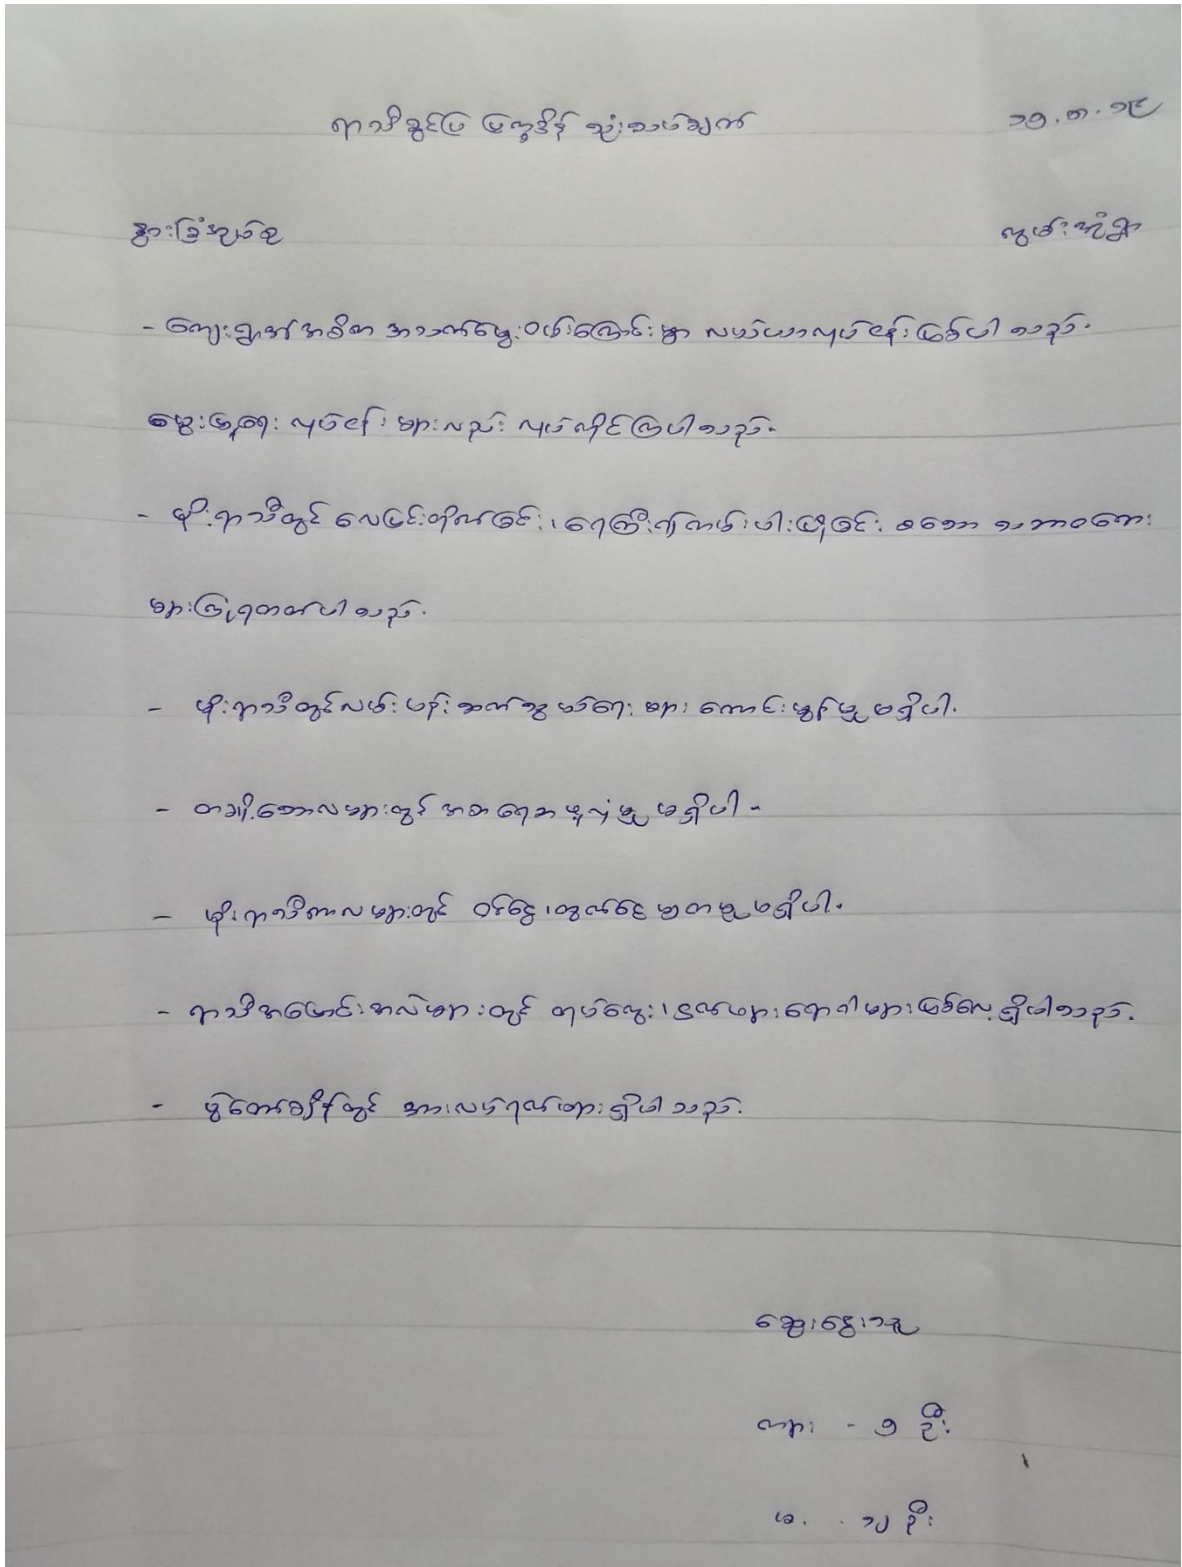 ရာသီခွင်ပြ မြက္ခဒိန် သုံးသပ်ချက် ၁၅.၈.၁၉
နွားခြံအုပ်စု ကျွမ်းအုံရွာ
- ကျေးရွာ၏အဓိက အသက်မွေးဝမ်းကြောင်းမှာ လယ်ယာလုပ်ငန်းဖြစ်ပါသည်.
မွေးမြူရေး လုပ်ငန်းများလည်း လုပ်ကိုင်ကြပါသည်.
- မိုးရာသီတွင် လေပြင်းတိုက်ခြင်း၊ ရေကြီး၍ကမ်းပါးပြိုခြင်း စသော သဘာဝဘေး
များကြုံရတတ်ပါသည်.
- မိုးရာသီတွင်လမ်းပန်းဆက်သွယ်ရေးများ ကောင်းမွန်မှု မရှိပါ.
- တချို့သောလများတွင် အစာရေစာဖူလုံမှု မရှိပါ-
- မိုးရာသီကာလများတွင် ဝင်ငွေ၊ထွက်ငွေ မျှတမှု မရှိပါ.
- ရာသီအပြောင်းအလဲများတွင် တုပ်ကွေး၊ငှက်ဖျားရောဂါများဖြစ်လေ့ရှိပါသည်.
- ပွဲတော်ချိန်တွင် အားလပ်ရက်များရှိပါသည်.
ဆွေးနွေးသူ
ကျား - ၅ ဦး
မ - ၁၂ ဦး